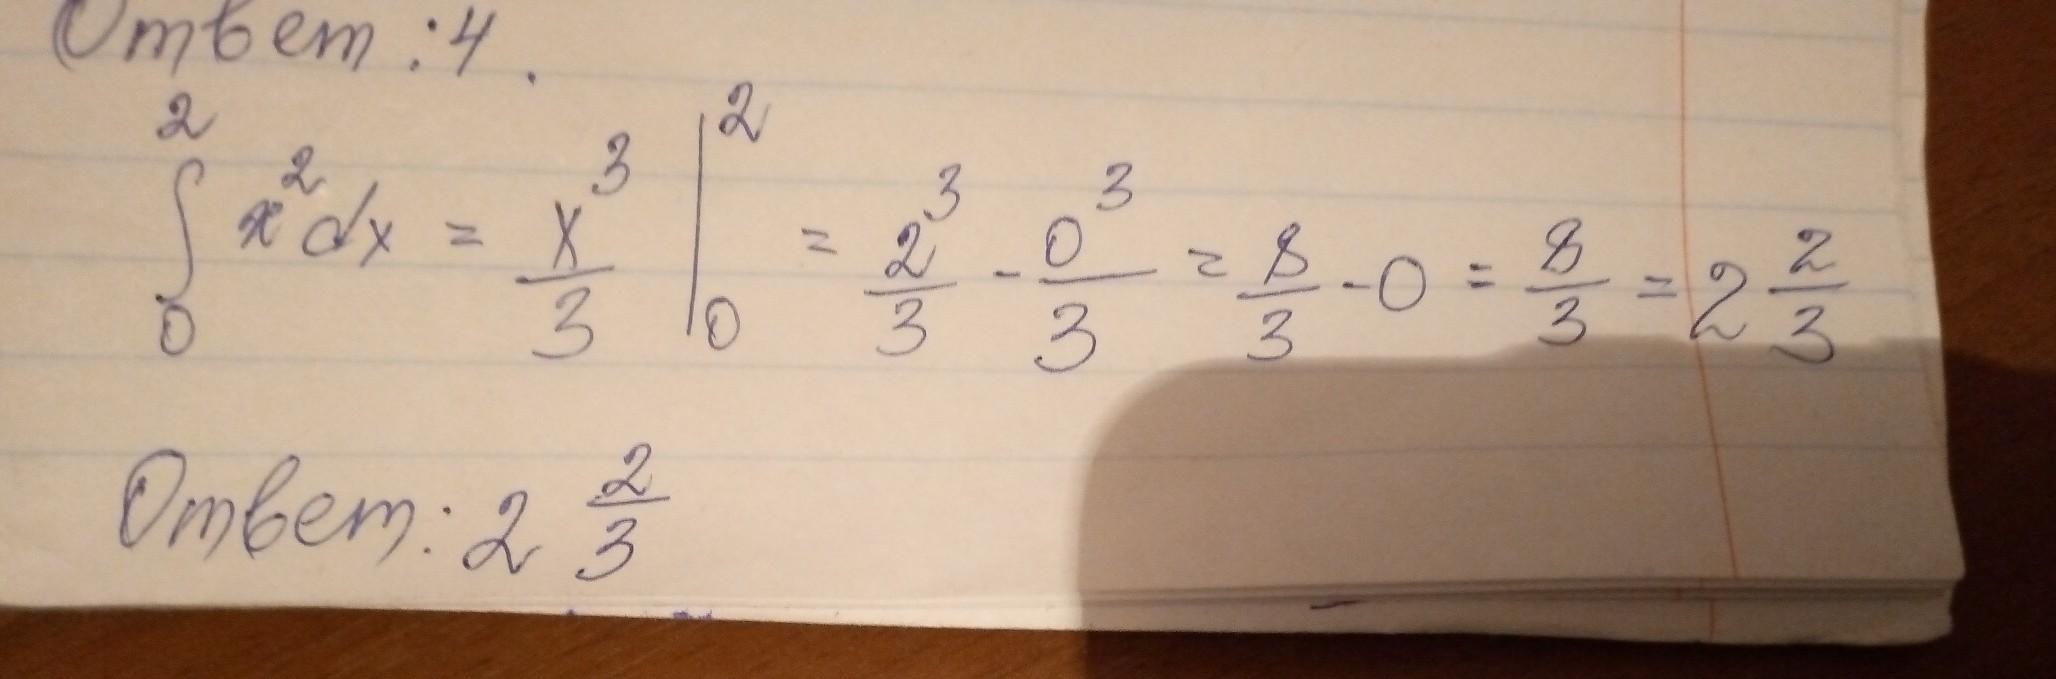 Ответ: 4.
∫₀² x² dx = x³/3 |₀² = 2³/3 - 0³/3 = 8/3 - 0 = 8/3 = 2 2/3
Ответ: 2 2/3